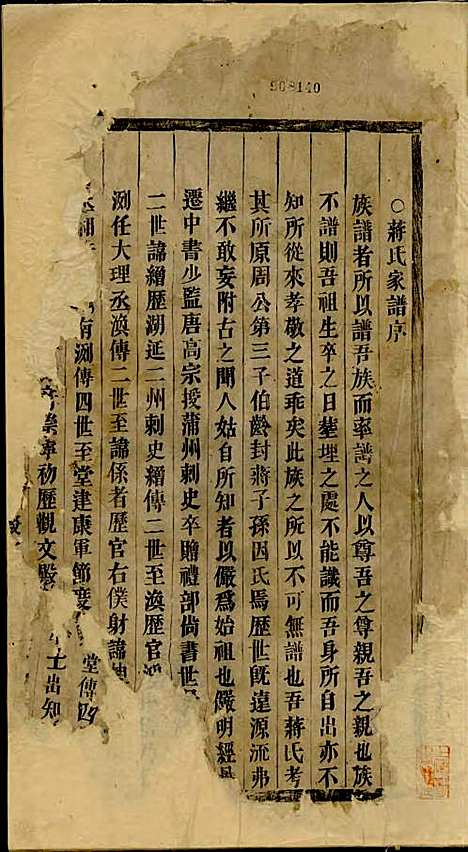 908140
○蔣氏家譜序
族譜者所以譜吾族而率譜之人以尊吾之尊親吾之親也族
不譜則吾祖生卒之日塟埋之處不能識而吾身所自出亦不
知所從來孝敬之道乖矣此族之所以不可無譜也吾蔣氏考
其所原周公第三子伯齡封蔣子孫因氏焉歷世旣遠源流弗
繼不敢妄附古之聞人姑自所知者以儼爲始祖也儼明經
遷中書少監唐高宗授蒲州刺史卒贈禮部尙書世
二世諱繒歷湖延二州刺史繒傳二世至渙歷官
洌任大理丞渙傳二世至諱係者歷官右僕射諱
有洌傳四世至堂建康軍節度 堂傳四
寧初歷觀文殿 士出知